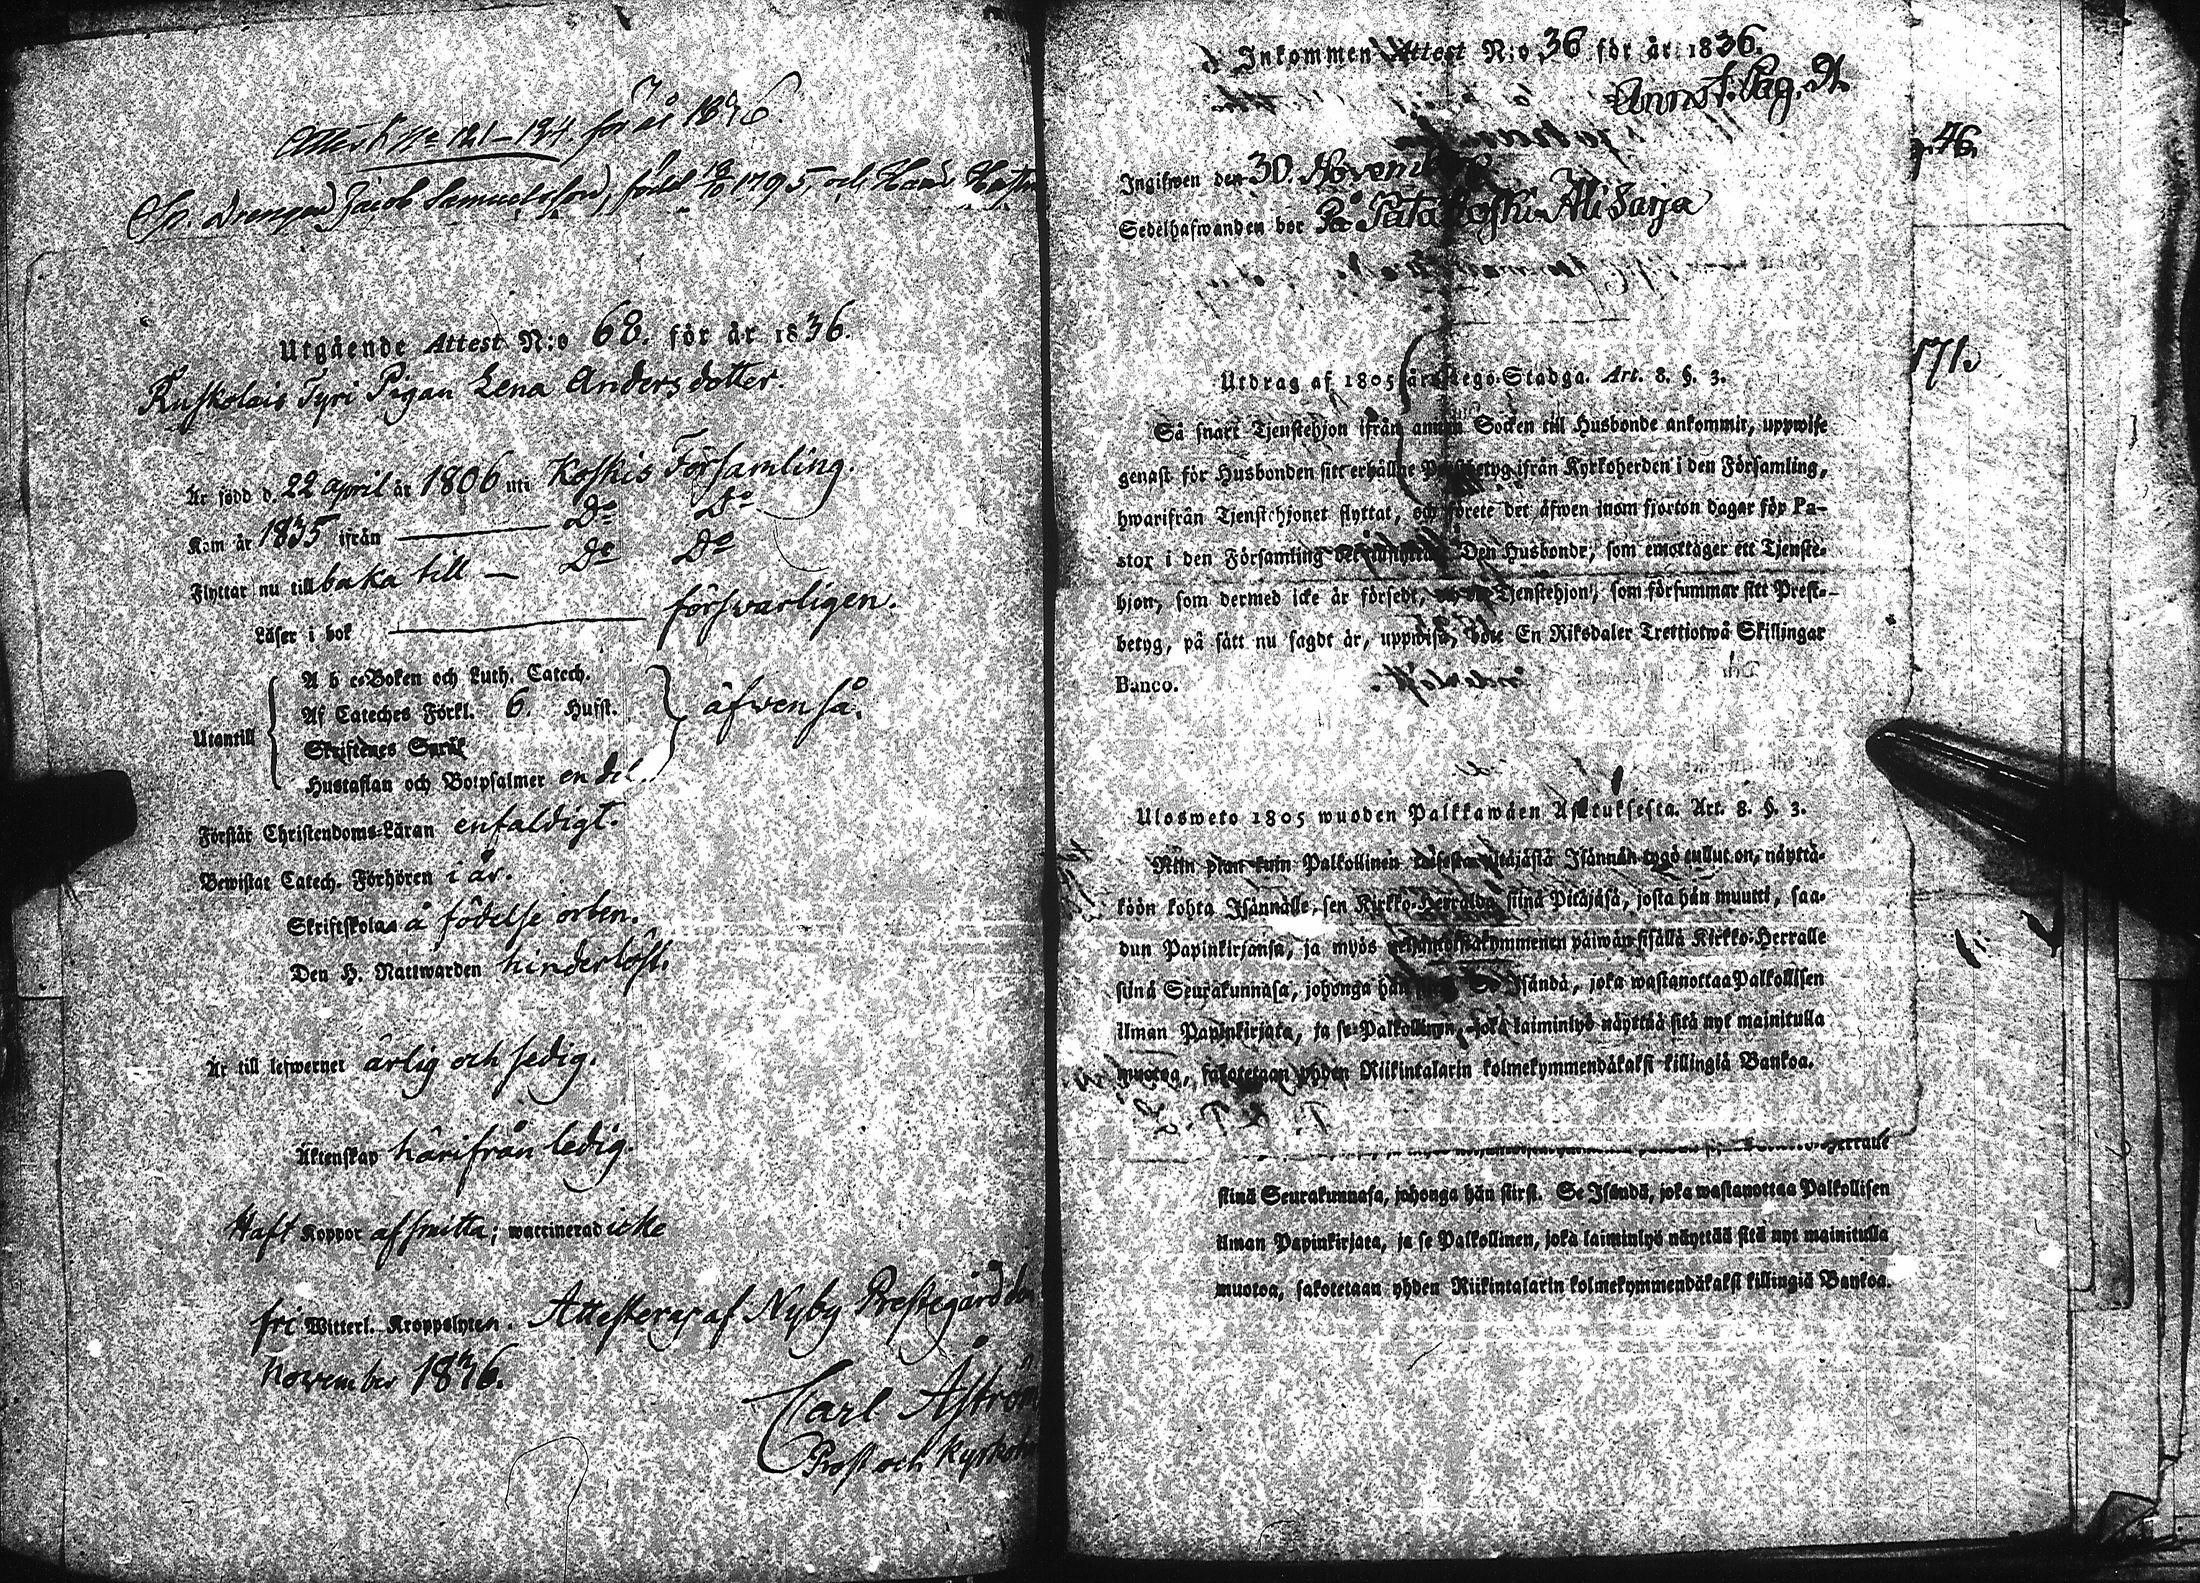 Attest No 121–124. för år 1836.
Drengen Jacob Samuelsson, född 1795, och Hans Hustru
Utgående Attest N:o 68. för år 1836.
Ruskolais Tyri Pigan Lena Andersdotter.
Är född d. 22 april år 1806 uti Koskis Församling.
Kom år 1835 ifrån — Do Do
Flyttar nu till baka till — Do Do
Läser i bok — förswarligen.
A b c-Boken och Luth. Catech.
Af Cateches Förkl. 6. Hufst.
Utantill { } äfwen så.
Skriftenes Språk
Hustaflan och Botpsalmer en del.
Förstår Christendoms-Läran enfaldigt.
Bewistat Catech. Förhören i år.
Skriftskolan å födelse orten.
Den H. Nattwarden hinderlöst.
Är till lefwernet ärlig och sedig.
Äktenskap härifrån ledig.
Haft Koppor af smitta; waccinerad icke
fri Witterl. Kroppslyten. Attesteras af Nyby Prestegård den
November 1836.
Carl Åström
Prost och Kyrkoh
Inkommen Attest N:o 36 för år 1836.
Pag.
46.
Ingifwen den 30. November
Sedelhafwanden bor På Patakoski Ali Sarja
171.
Utdrag af 1805 års Lego-Stadga. Art. 8. §. 3.
Så snart Tjenstehjon ifrån annan Socken till Husbonde ankommit, uppwise
genast för Husbonden sitt erhållne Prestbetyg ifrån Kyrkoherden i den Församling,
hwarifrån Tjenstehjonet flyttat, och förete det äfwen inom fjorton dagar för Pa-
stor i den Församling det inflyttat. Den Husbonde, som emottager ett Tjenste-
hjon, som dermed icke är försedt, och Tjenstehjon, som försummar sitt Prest-
betyg, på sätt nu sagdt är, uppwisa, böte En Riksdaler Trettiotwå Skillingar
Banco.
Ulosweto 1805 wuoden Palkkawäen Asetuksesta. Art. 8. §. 3.
Niin pian kuin Palkollinen toisesta Pitäjästä Isännän tygö tullut on, näyttä-
köön kohta Isännälle, sen Kirkko-Herralda siinä Pitäjäsä, josta hän muutti, saa-
dun Papinkirjansa, ja myös neljäntoistakymmenen päiwän sisällä Kirkko-Herralle
siinä Seurakunnasa, johonga hän siirsi. Se Isändä, joka wastanottaa Palkollisen
ilman Papinkirjata, ja se Palkollinen, joka laiminlyö näyttää sitä nyt mainitulla
muotoa, sakotetaan yhden Riikintalarin kolmekymmendäkaksi killingiä Bankoa.
Herralle
siinä Seurakunnasa, johonga hän siirsi. Se Isändä, joka wastanottaa Palkollisen
ilman Papinkirjata, ja se Palkollinen, joka laiminlyö näyttää sitä nyt mainitulla
muotoa, sakotetaan yhden Riikintalarin kolmekymmendäkaksi killingiä Bankoa.